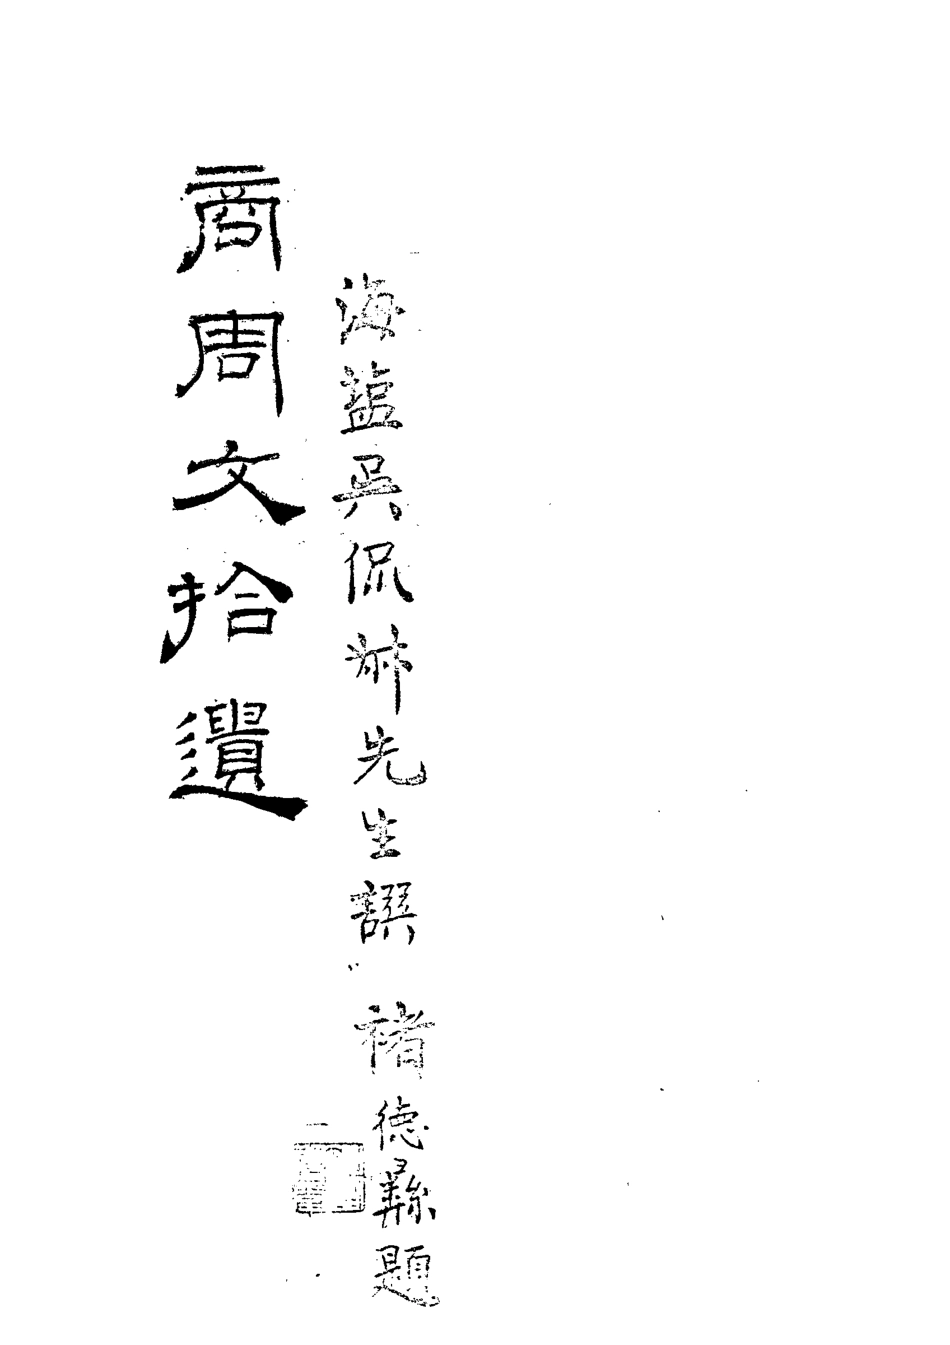 海盐吳侃叔先生譔 褚德彝題
商周文拾遺